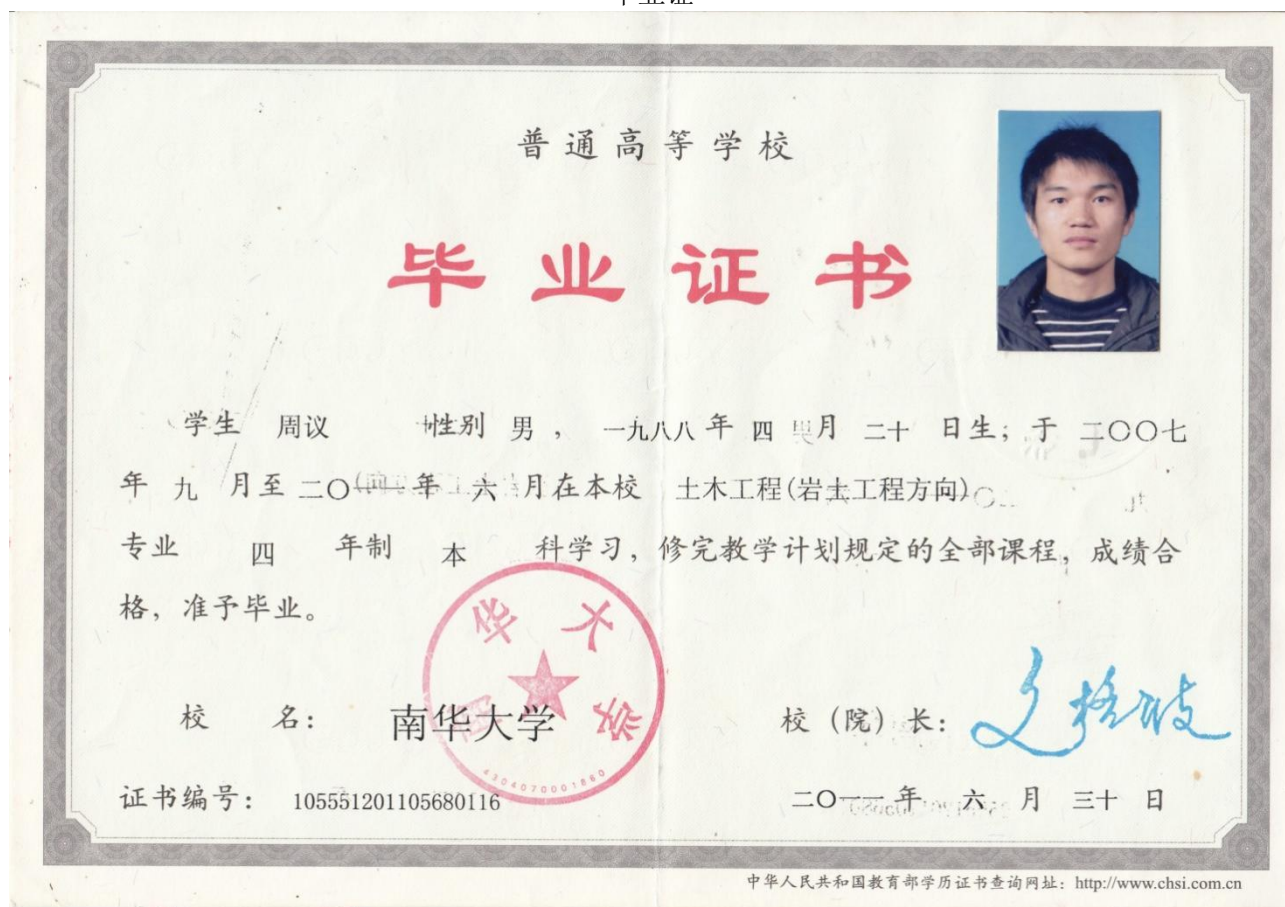 毕业证
普通高等学校
毕业证书
学生 周议 性别 男 , 一九八八 年 四 月 二十 日生; 于 二〇〇七
年 九 月至 二〇一一 年 六 月在本校 土木工程(岩土工程方向)
专业 四 年制 本 科学习, 修完教学计划规定的全部课程, 成绩合
格, 准予毕业。
南华大学
4304070001860
校 名: 南华大学
校(院)长:
证书编号: 105551201105680116
二〇一一 年 六 月 三十 日
中华人民共和国教育部学历证书查询网址: http://www.chsi.com.cn